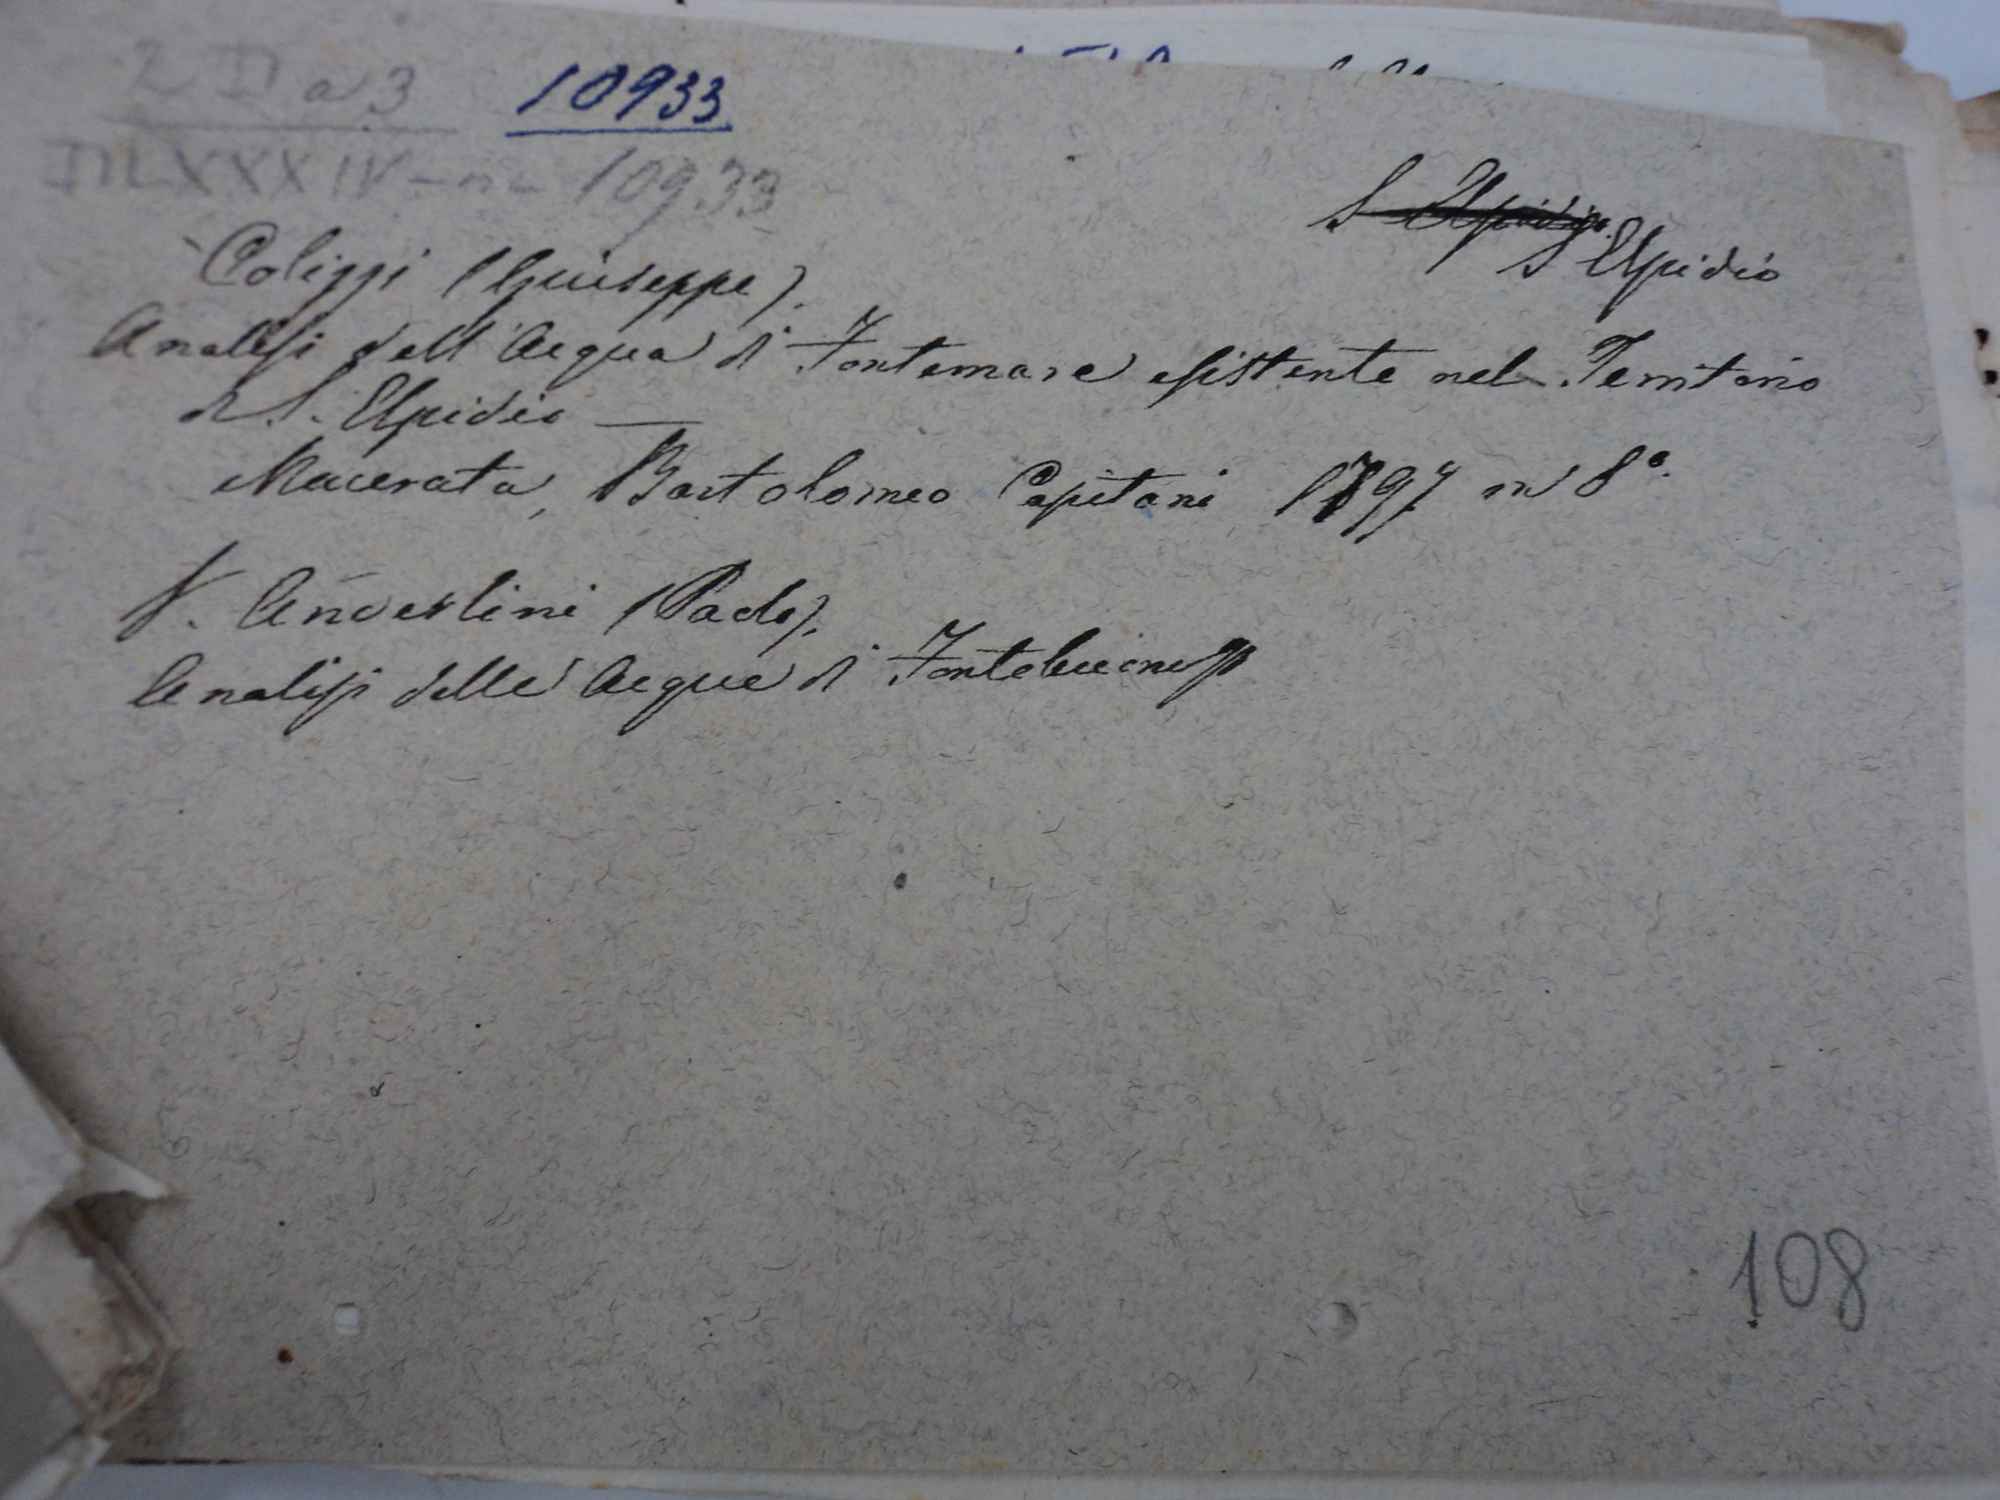 2 II a 3 10933
DLXXXIV - n= 10933
S Elpidio
S Elpidio
Colizzi (Giuseppe).
Analisi dell'Acqua di Fontemare esistente nel Territorio
di S. Elpidio —
Macerata, Bartolomeo Capitani 1797 in 8°.
V. Andeslini (Paolo).
Analisi delle Acque di
108